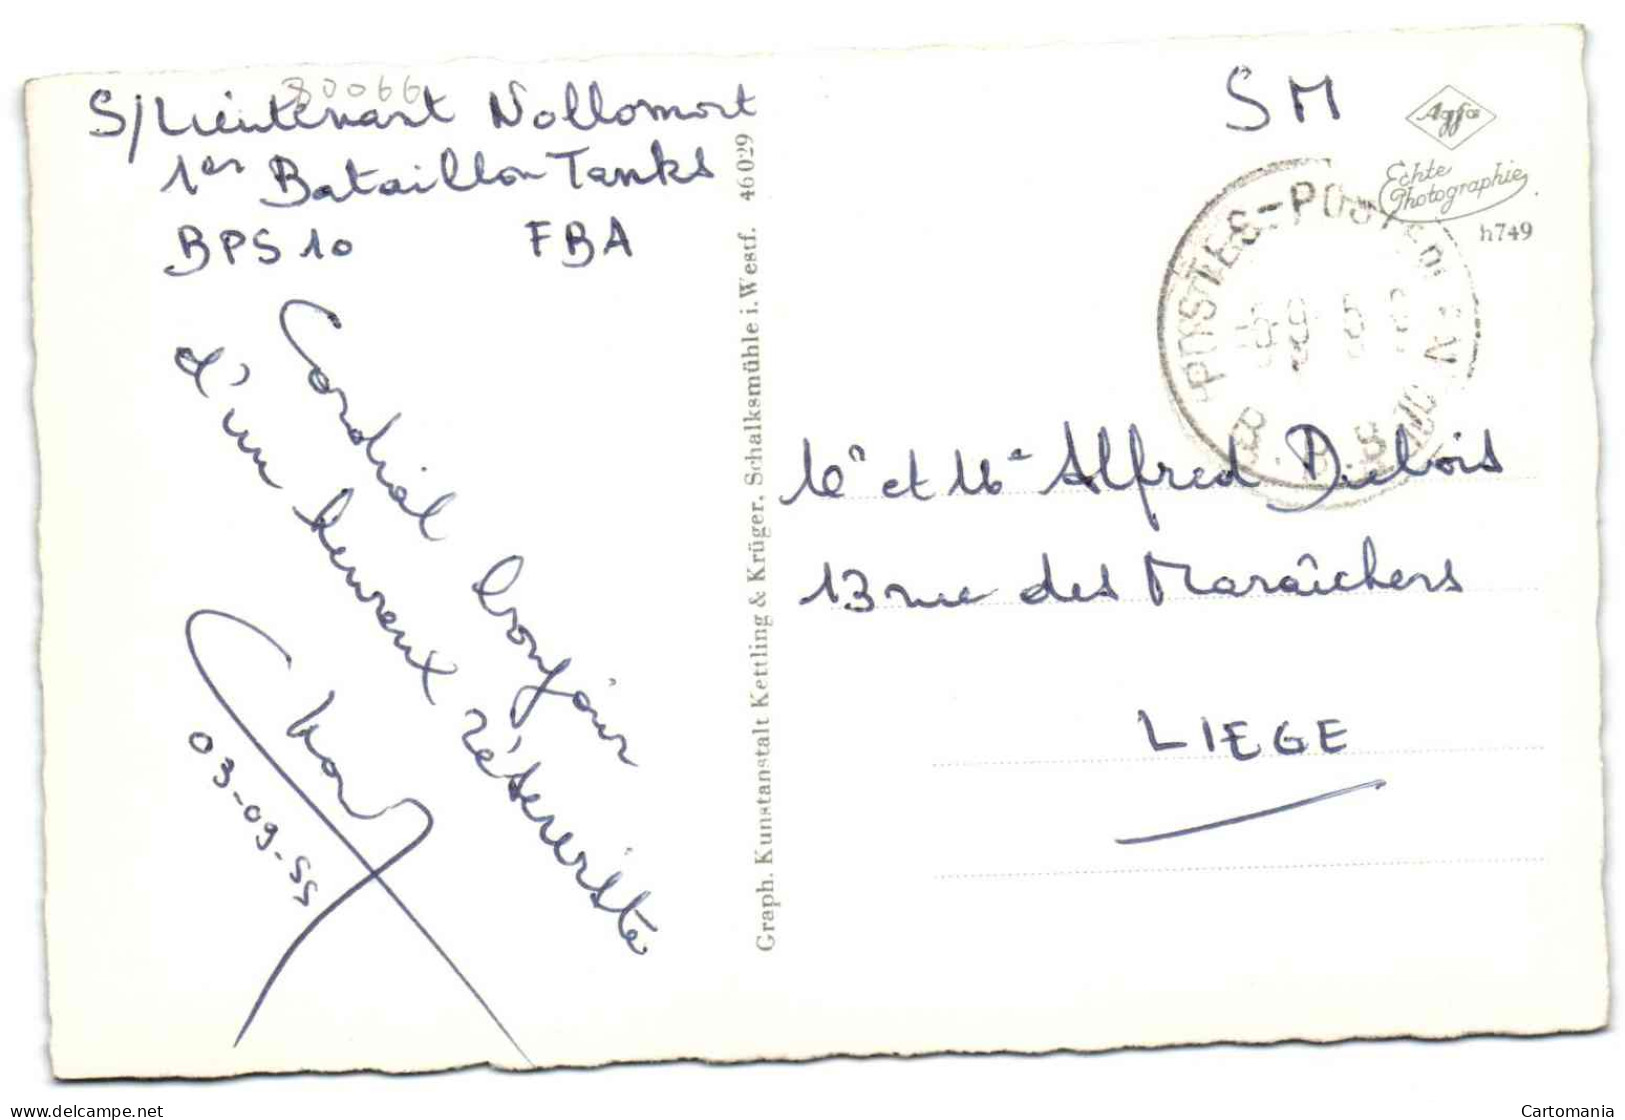 80066
S/Lieutenant Nollomont
1er Bataillon Tanks
BPS 10 FBA
Cordial bonjour
d'un heureux réserviste
03-09-55
Graph. Kunstanstalt Kettling & Krüger. Schalksmühle i. Westf. 46029
SM
Agfa
Echte
Photographie
h749
POSTES-POSTERIJEN
Mr et Me Alfred Dubois
13 rue des Maraîchers
LIEGE
Cartomania